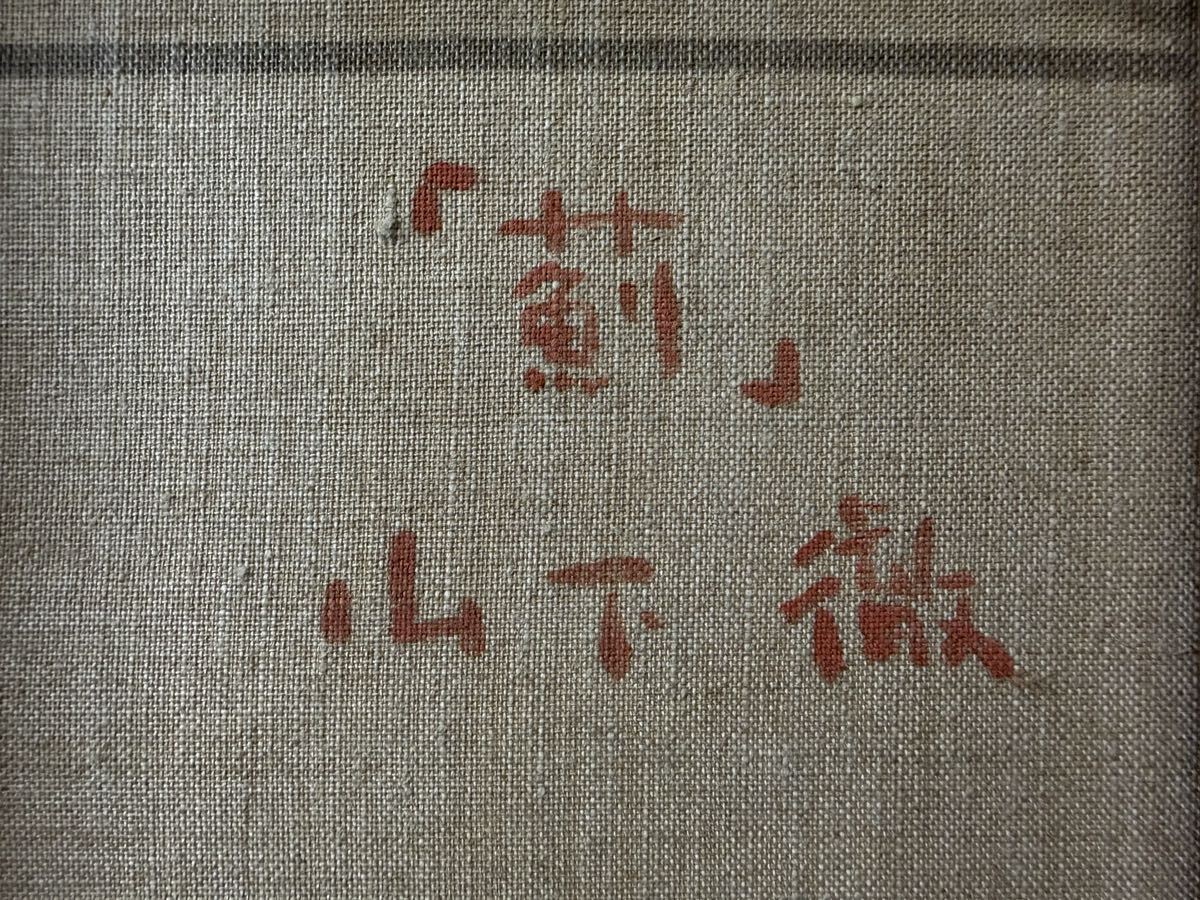 「薊」
山下徹